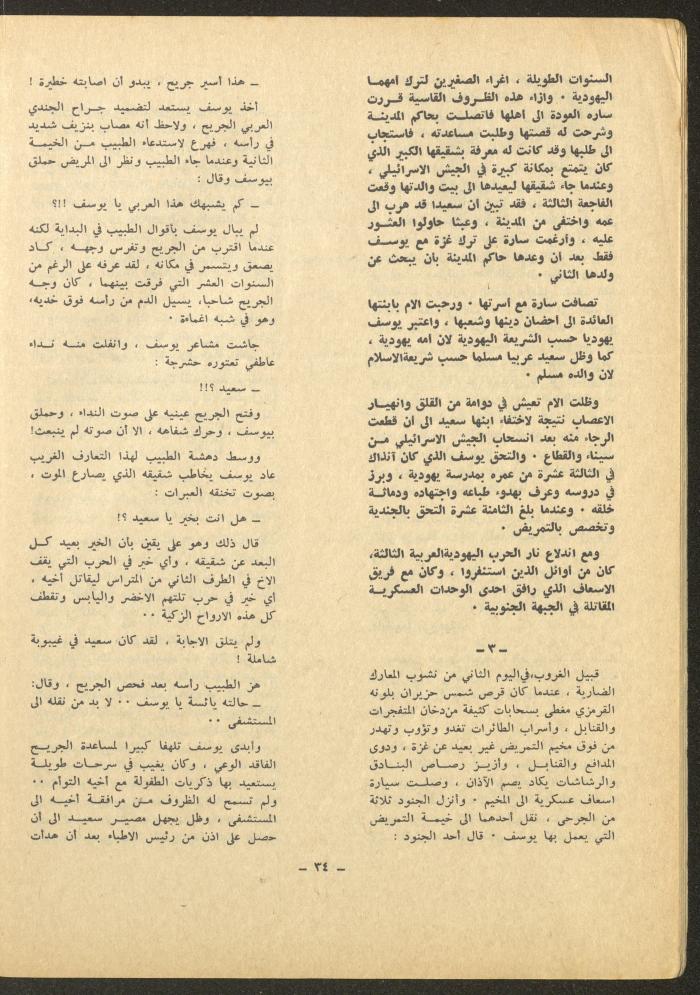 السنوات الطويلة ، اغراء الصغيرين لترك أمهما
اليهودية ٠ وازاء هذه الظروف القاسية قررت
ساره العودة الى اهلها فاتصلت بحاكم المدينة
وشرحت له قصتها وطلبت مساعدته ، فاستجاب
الى طلبها وقد كانت له معرفة بشقيقها الكبير الذي
كان يتمتع بمكانة كبيرة في الجيش الاسرائيلي ،
وعندما جاء شقيقها ليعيدها الى بيت والدتها وقعت
الفاجعة الثالثة ، فقد تبين أن سعيدا قد هرب الى
عمه واختفى من المدينة ، وعبثا حاولوا العثور
عليه ، وأرغمت سارة على ترك غزة مع يوسف
فقط بعد أن وعدها حاكم المدينة بان يبحث عن
ولدها الثاني ٠
تصافت سارة مع أسرتها ٠ ورحبت الام بابنتها
العائدة الى احضان دينها وشعبها ، واعتبر يوسف
يهوديا حسب الشريعة اليهودية لان امه يهودية ،
كما وظل سعيد عربيا مسلما حسب شريعةالاسلام
لان والده مسلم ٠
وظلت الام تعيش في دوامة من القلق وانهيار
الاعصاب نتيجة لاختفاء ابنها سعيد الى ان قطعت
الرجاء منه بعد انسحاب الجيش الاسرائيلي من
سيناء والقطاع ٠ والتحق يوسف الذي كان آنذاك
في الثالثة عشرة من عمره بمدرسة يهودية ، وبرز
في دروسه وعرف بهدوء طباعه واجتهاده ودماثة
خلقه ٠ وعندما بلغ الثامنة عشرة التحق بالجندية
وتخصص بالتمريض ٠
ومع اندلاع نار الحرب اليهوديةالعربية الثالثة،
كان من أوائل الذين استنفروا ، وكان مع فريق
الاسعاف الذي رافق احدى الوحدات العسكرية
المقاتلة في الجبهة الجنوبية ٠
ـ ٣ ـ
قبيل الغروب،فياليوم الثاني من نشوب المعارك
الضارية ، عندما كان قرص شمس حزيران بلونه
القرمزي مغطى بسحابات كثيفة مندخان المتفجرات
والقنابل ، وأسراب الطائرات تغدو وتؤوب وتهدر
من فوق مخيم التمريض غير بعيد عن غزة ، ودوى
المدافع والقنابل ، وأزيز رصاص البنادق
والرشاشات يكاد يصم الآذان ، وصلت سيارة
اسعاف عسكرية الى المخيم ٠ وأنزل الجنود ثلاثة
من الجرحى ، نقل أحدهما الى خيمة التمريض
التي يعمل بها يوسف ٠ قال أحد الجنود :
ـ هذا أسير جريح ، يبدو أن اصابته خطيرة !
أخذ يوسف يستعد لتضميد جراح الجندي
العربي الجريح ، ولاحظ أنه مصاب بنزيف شديد
في رأسه ، فهرع لاستدعاء الطبيب من الخيمة
الثانية وعندما جاء الطبيب ونظر الى المريض حملق
بيوسف وقال :
ـ كم يشبهك هذا العربي يا يوسف !!؟
لم يبال يوسف بأقوال الطبيب في البداية لكنه
عندما اقترب من الجريح وتفرس وجهه ، كاد
يصعق ويتسمر في مكانه ، لقد عرفه على الرغم من
السنوات العشر التي فرقت بينهما ، كان وجه
الجريح شاحبا، يسيل الدم من رأسه فوق خديه،
وهو في شبه اغماءة ٠
جاشت مشاعر يوسف ، وانفلت منه نداء
عاطفي تعتوره حشرجة :
ـ سعيد ؟!!
وفتح الجريح عينيه على صوت النداء ، وحملق
بيوسف ، وحرك شفاهه ، الا أن صوته لم ينبعث!
ووسط دهشة الطبيب لهذا التعارف الغريب
عاد يوسف يخاطب شقيقه الذي يصارع الموت ،
بصوت تخنقه العبرات :
ـ هل انت بخير يا سعيد ؟!
قال ذلك وهو على يقين بأن الخير بعيد كل
البعد عن شقيقه ، وأي خير في الحرب التي يقف
الاخ في الطرف الثاني من المتراس ليقاتل أخيه ،
أي خير في حرب تلتهم الاخضر واليابس وتقطف
كل هذه الارواح الزكية ٠٠
ولم يتلق الاجابة ، لقد كان سعيد في غيبوبة
شاملة !
هز الطبيب رأسه بعد فحص الجريح ، وقال:
ـ حالته يائسة يا يوسف ٠٠ لا بد من نقله الى
المستشفى ٠٠
وأبدى يوسف تلهفا كبيرا لمساعدة الجريح
الفاقد الوعي ، وكان يغيب في سرحات طويلة
يستعيد بها ذكريات الطفولة مع أخيه التوأم ٠٠
ولم تسمح له الظروف من مرافقة أخيه الى
المستشفى ، وظل يجهل مصير سعيد الى أن
حصل على اذن من رئيس الاطباء بعد أن هدأت
ـ ٣٤ ـ